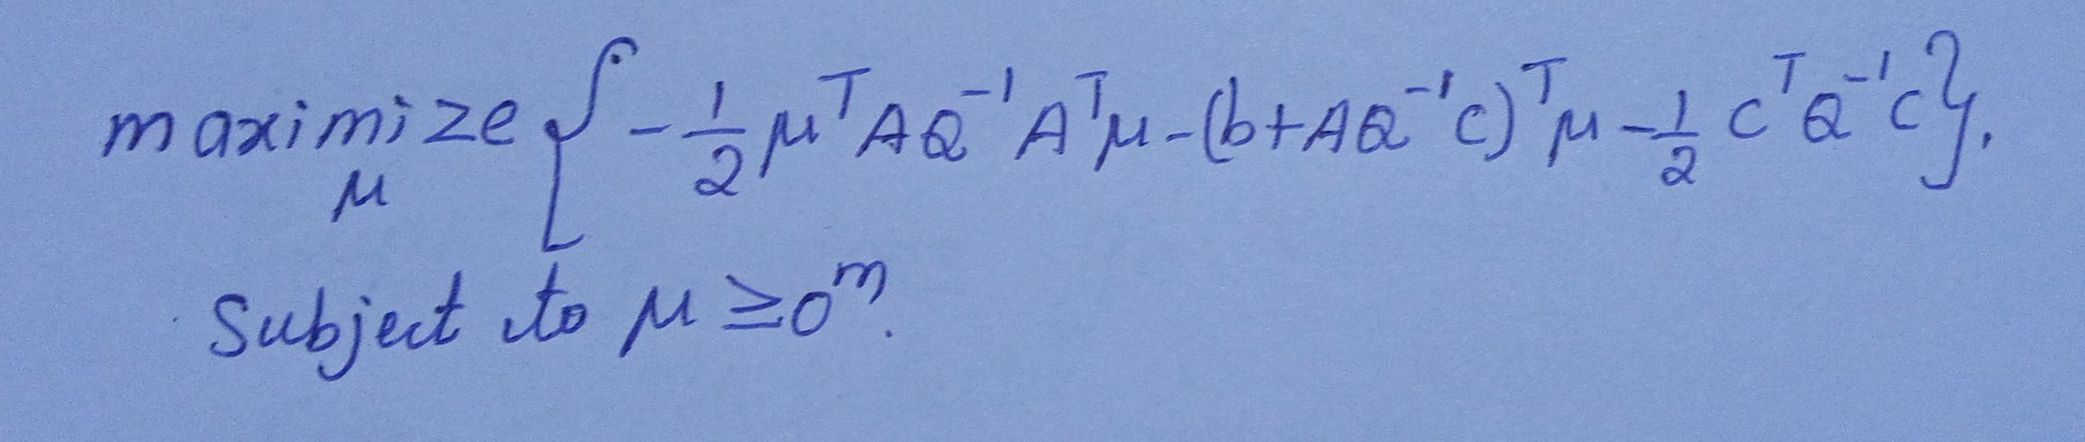 maximize { -1/2 μᵀAQ⁻¹Aᵀμ - (b+AQ⁻¹c)ᵀμ - 1/2 cᵀQ⁻¹c }.
μ
Subject to μ ≥ 0ᵐ.